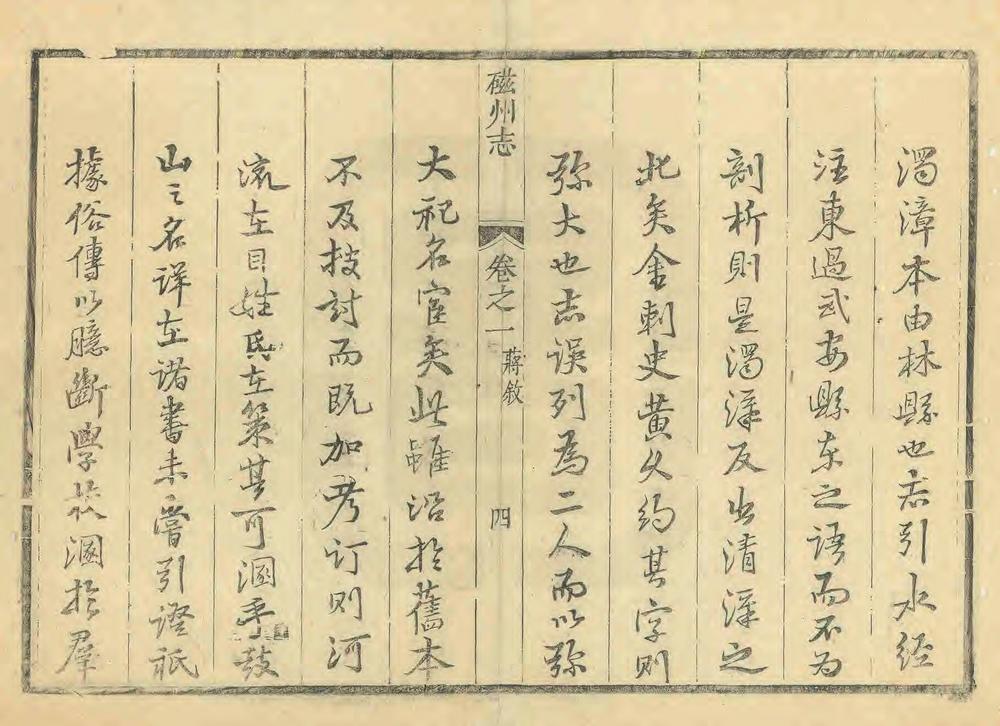 濁漳本由林縣也志引水經
注東過武安縣東之語而不为
剖析則是濁漳反出清漳之
北矣金刺史黄久約其字則
弥大也志误列為二人而以弥
磁州志
卷之一
蔣敘
四
大祀名宦矣此雖沿扵舊本
不及技討而既加考订则河
流在目姓氏在策其可溷乎鼓
山之名详在诸書未嘗引證祇
據俗傳以臆斷學校溷扵羣